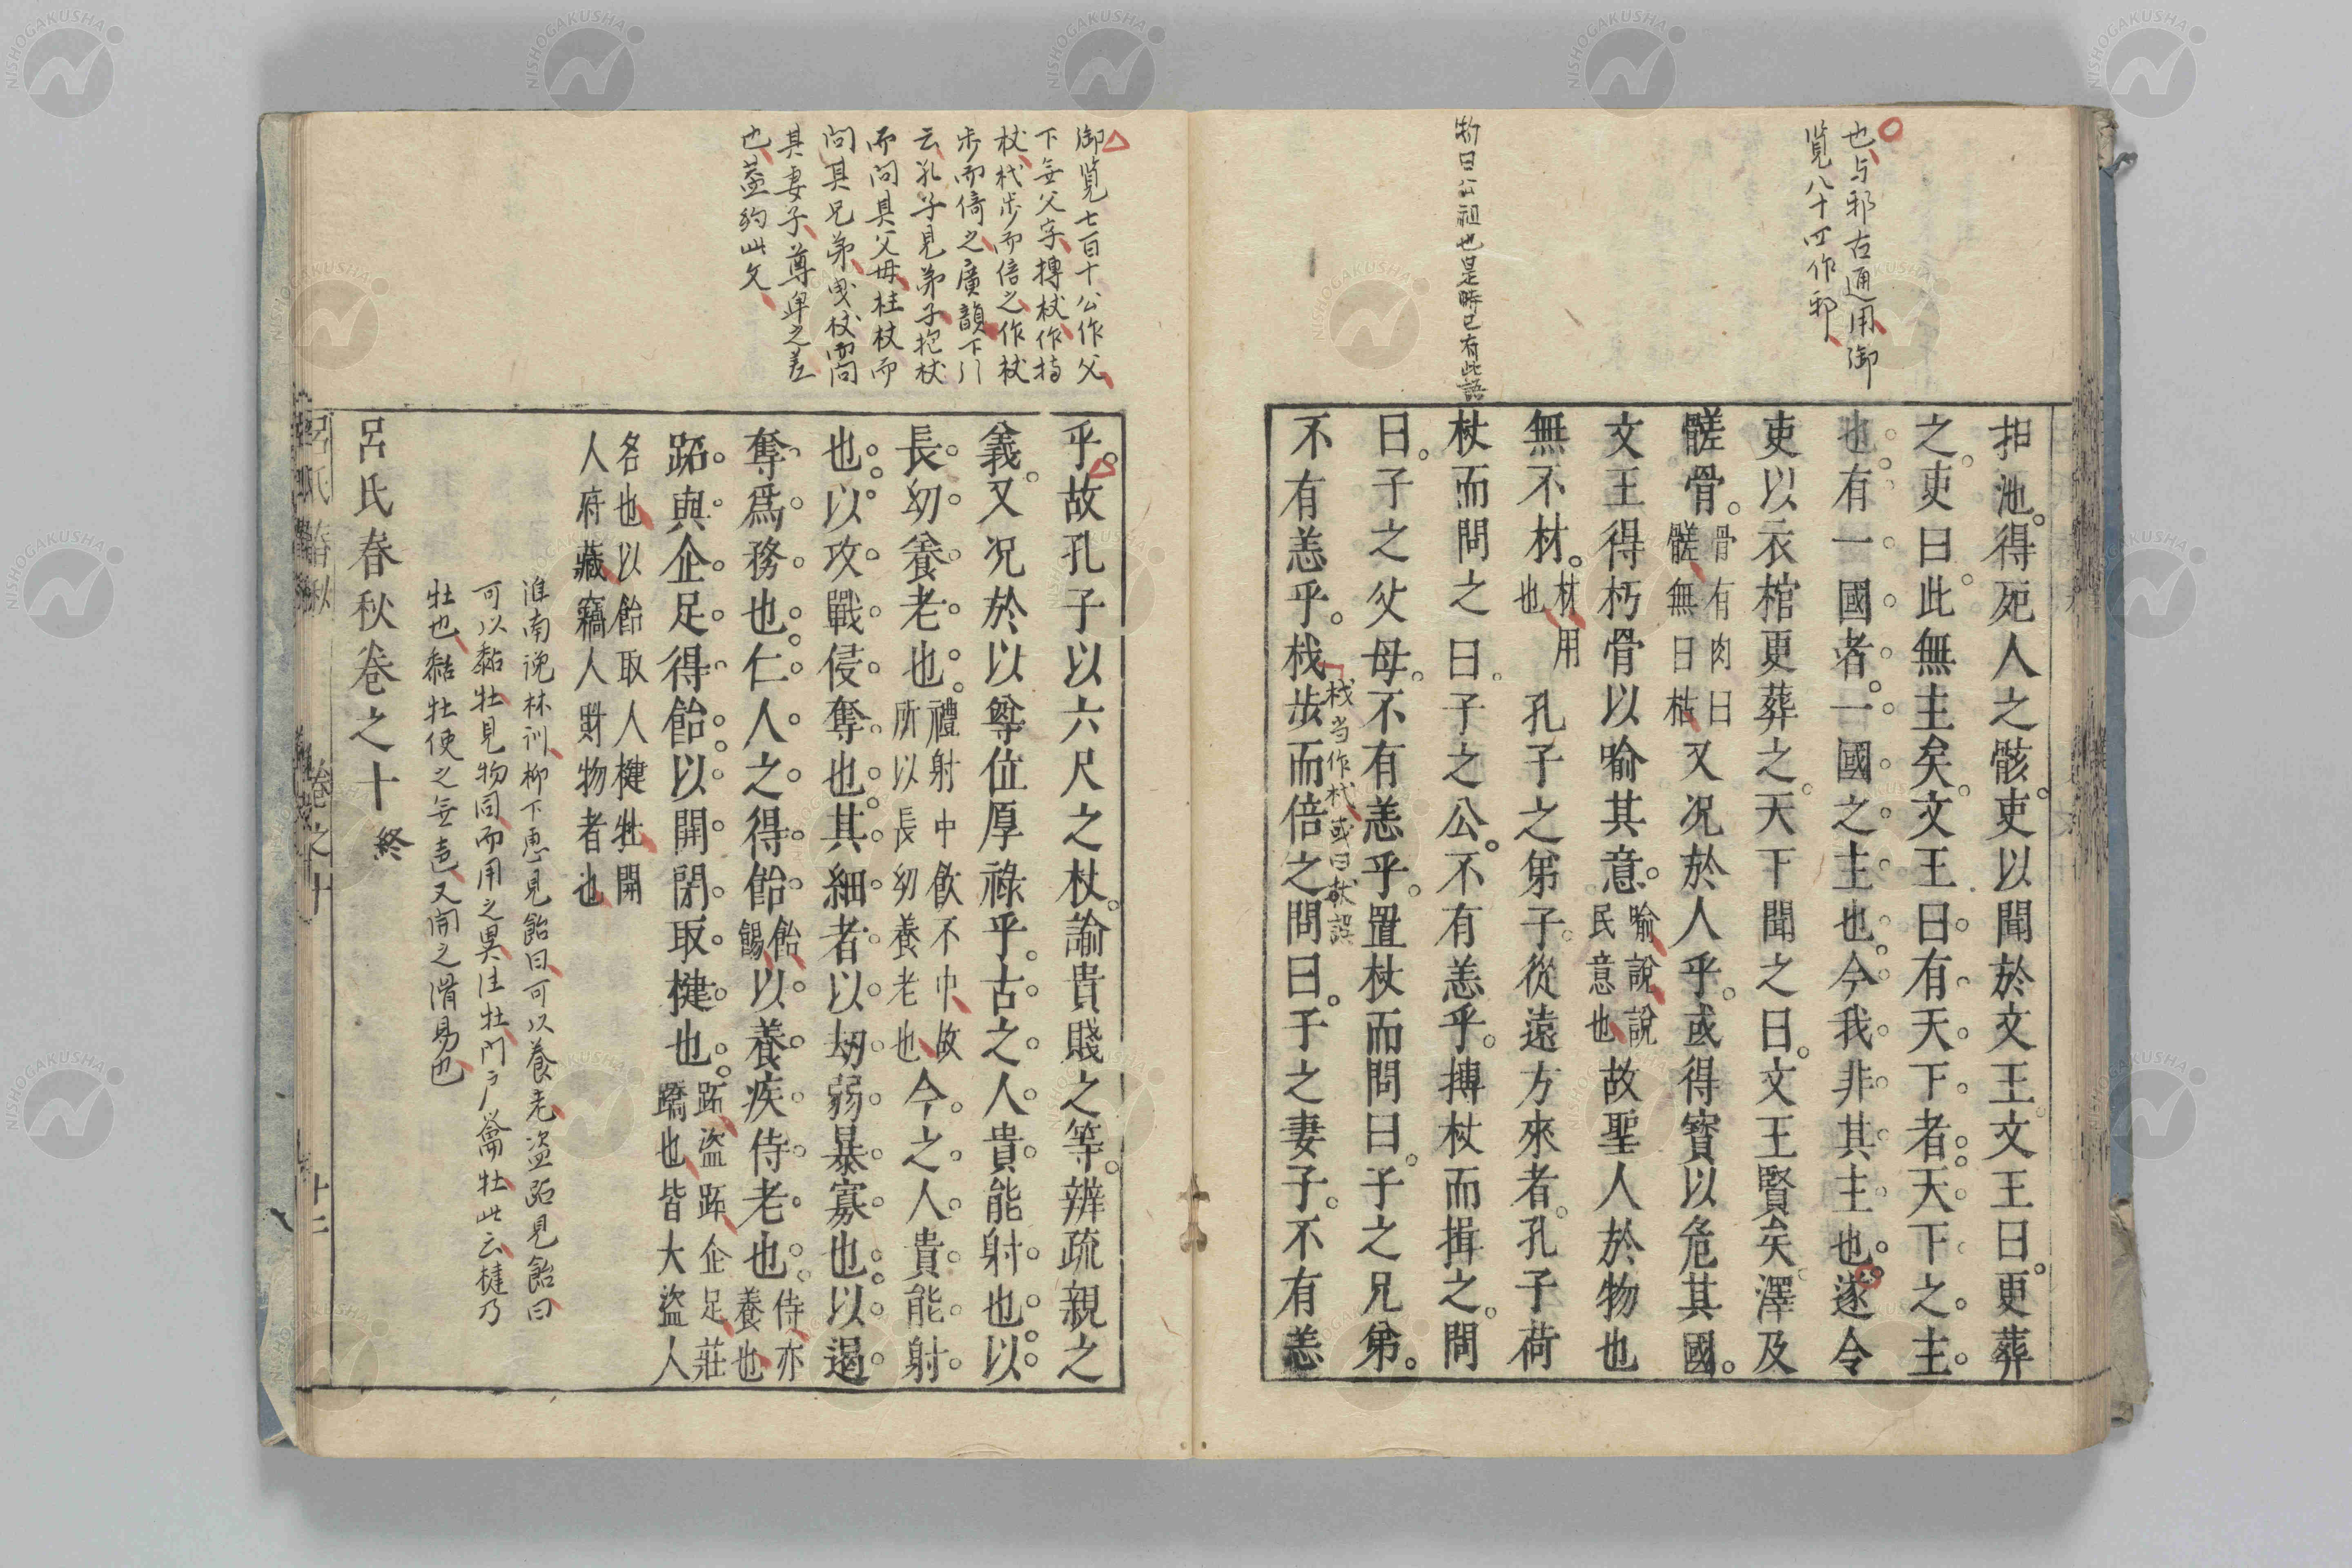 也与邪古通用御
覧八十四作邪
物曰公祖也是時已有此語
抇池得死人之骸吏以聞於文王文王曰更葬
之吏曰此無主矣文王曰有天下者天下之主
也有一國者一國之主也今我非其主也遂令
吏以衣棺更葬之天下聞之曰文王賢矣澤及
髊骨骨有肉曰髊無曰枯又況於人乎或得寶以危其國
文王得朽骨以喻其意喻說說民意也故聖人於物也
無不材材用也孔子之弟子從遠方來者孔子荷
杖而問之曰子之公不有恙乎搏杖而揖之問
曰子之父母不有恙乎置杖而問曰子之兄弟
不有恙乎栈步而倍之問曰子之妻子不有恙
栈当作杙或曰杖誤
御覧七百十公作父
下無父字搏杖作持
杖杙步而倍之作杖
步而倚之廣韻下引
云孔子見弟子抱杖
而問其父母柱杖而
問其兄弟曳杖而問
其妻子尊卑之差
也蓋約此文
乎故孔子以六尺之杖諭貴賤之等辨疏親之
義又況於以尊位厚祿乎古之人貴能射也以
長幼養老也禮射中飲不中故所以長幼養老也今之人貴能射
也以攻戰侵奪也其細者以劫弱暴寡也以遏
奪爲務也仁人之得飴飴餳以養疾侍老也侍亦養也
跖與企足得飴以開閉取楗也跖盜跖企足莊蹻也皆大盜人
名也以飴取人楗牡開
人府藏竊人財物者也
淮南説林訓柳下恵見飴曰可以養老盗跖見飴曰
可以黏牡見物同而用之異注牡門戸籥牡此云楗乃
牡也黏牡使之無声又開之滑易也
呂氏春秋卷之十終
呂氏春秋 卷之十 十二
NISHOGAKUSHA